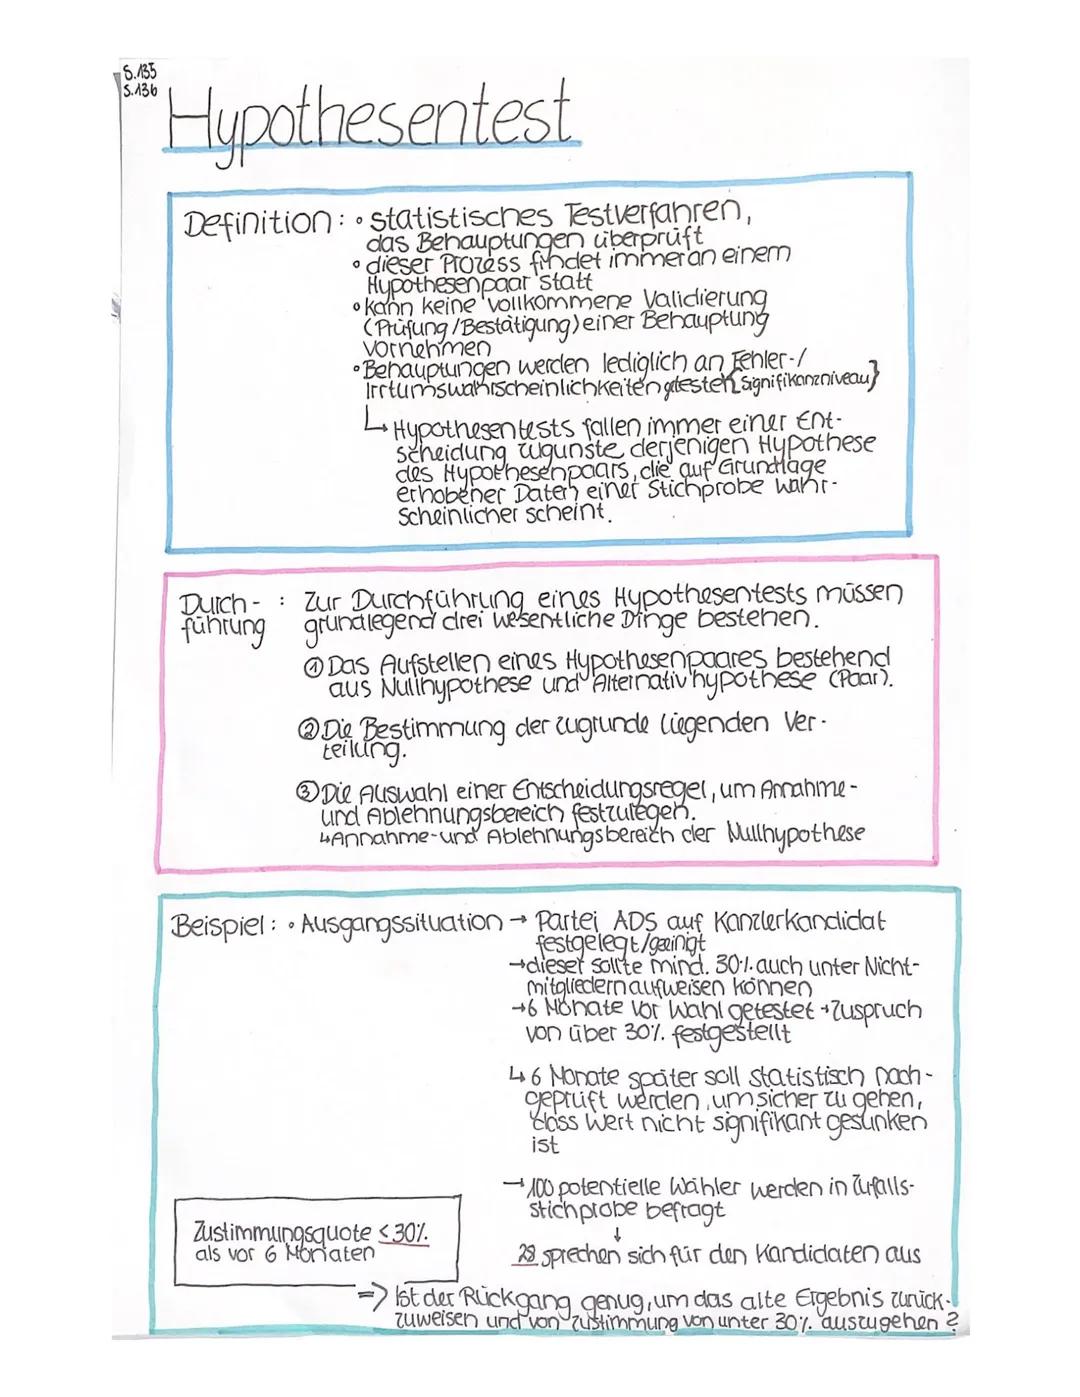 S.135
S.136
Hypothesentest
Definition: • statistisches Testverfahren,
das Behauptungen überprüft
• dieser Prozess findet immer an einem
Hypothesenpaar statt
• kann keine vollkommene Validierung
(Prüfung/Bestätigung) einer Behauptung
vornehmen
• Behauptungen werden lediglich an Fehler-/
Irrtumswahrscheinlichkeiten getestet {Signifikanzniveau}
↳ Hypothesentests fallen immer einer Ent-
scheidung zugunste derjenigen Hypothese
des Hypothesenpaars, die auf Grundlage
erhobener Daten einer Stichprobe wahr-
scheinlicher scheint.
Durch- : Zur Durchführung eines Hypothesentests müssen
führung grundlegend drei wesentliche Dinge bestehen.
① Das Aufstellen eines Hypothesenpaares bestehend
aus Nullhypothese und Alternativhypothese (Paar).
② Die Bestimmung der zugrunde liegenden Ver-
teilung.
③ Die Auswahl einer Entscheidungsregel, um Annahme-
und Ablehnungsbereich festzulegen.
↳ Annahme- und Ablehnungsbereich der Nullhypothese
Beispiel: • Ausgangssituation → Partei ADS auf Kanzlerkandidat
festgelegt/geeinigt
→ dieser sollte mind. 30% auch unter Nicht-
mitgliedern aufweisen können
→ 6 Monate vor Wahl getestet → Zuspruch
von über 30% festgestellt
↳ 6 Monate später soll statistisch nach-
geprüft werden, um sicher zu gehen,
dass Wert nicht signifikant gesunken
ist
→ 100 potentielle Wähler werden in Zufalls-
stichprobe befragt
↓
sprechen sich für den Kandidaten aus
Zustimmungsquote < 30%
als vor 6 Monaten
=> Ist der Rückgang genug, um das alte Ergebnis zurück-
zuweisen und von Zustimmung von unter 30% auszugehen?